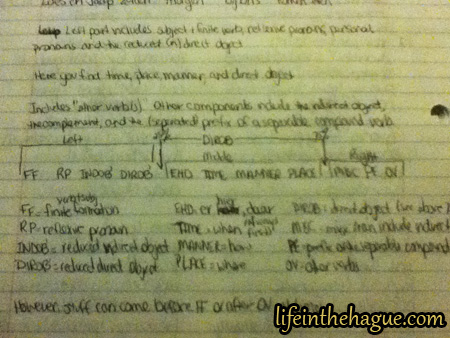 Left part includes subject, finite verb, reflexive pronoun, personal
pronouns and the reduced (in)direct object
Here you find time, place, manner, and direct object
Includes "other verb(s). Other components include the indirect object,
the complement, and the (separated) prefix of a separable compound verb.
Left DIROB
Middle Right
FF RP INDOB' DIROB' EHD TIME MANNER PLACE PE OV
FF = finite formation EHD = er hier, daar DIROB = direct object (see above)
RP = reflexive pronoun TIME = when include indirect
INDOB' = reduced indirect object MANNER = how PE = prefix of separable compound
DIROB' = reduced direct object PLACE = where OV = other verbs
However, stuff can come before FF or after OV
lifeinthehague.com